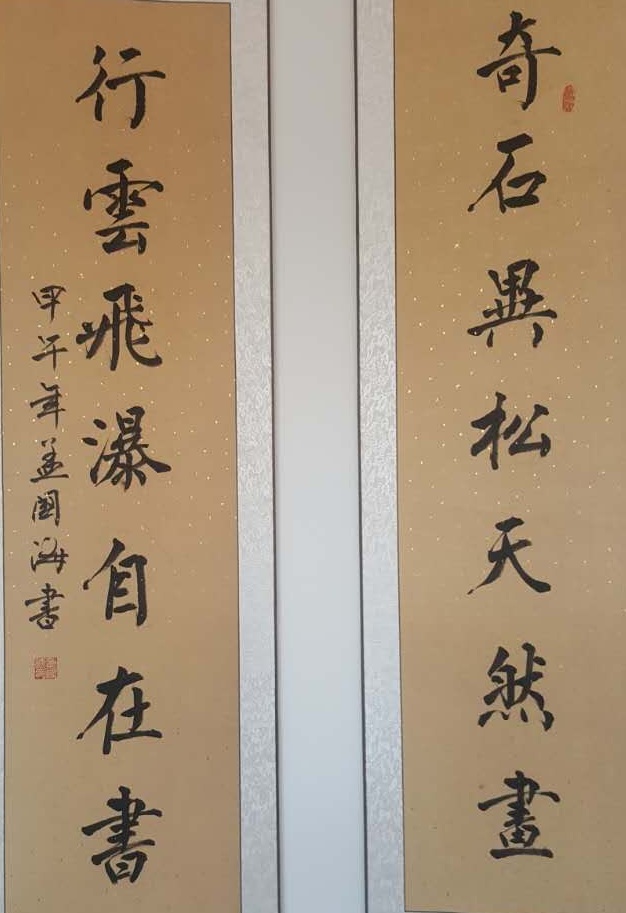 奇石異松天然畫
行雲飛瀑自在書
甲午年孟國海書